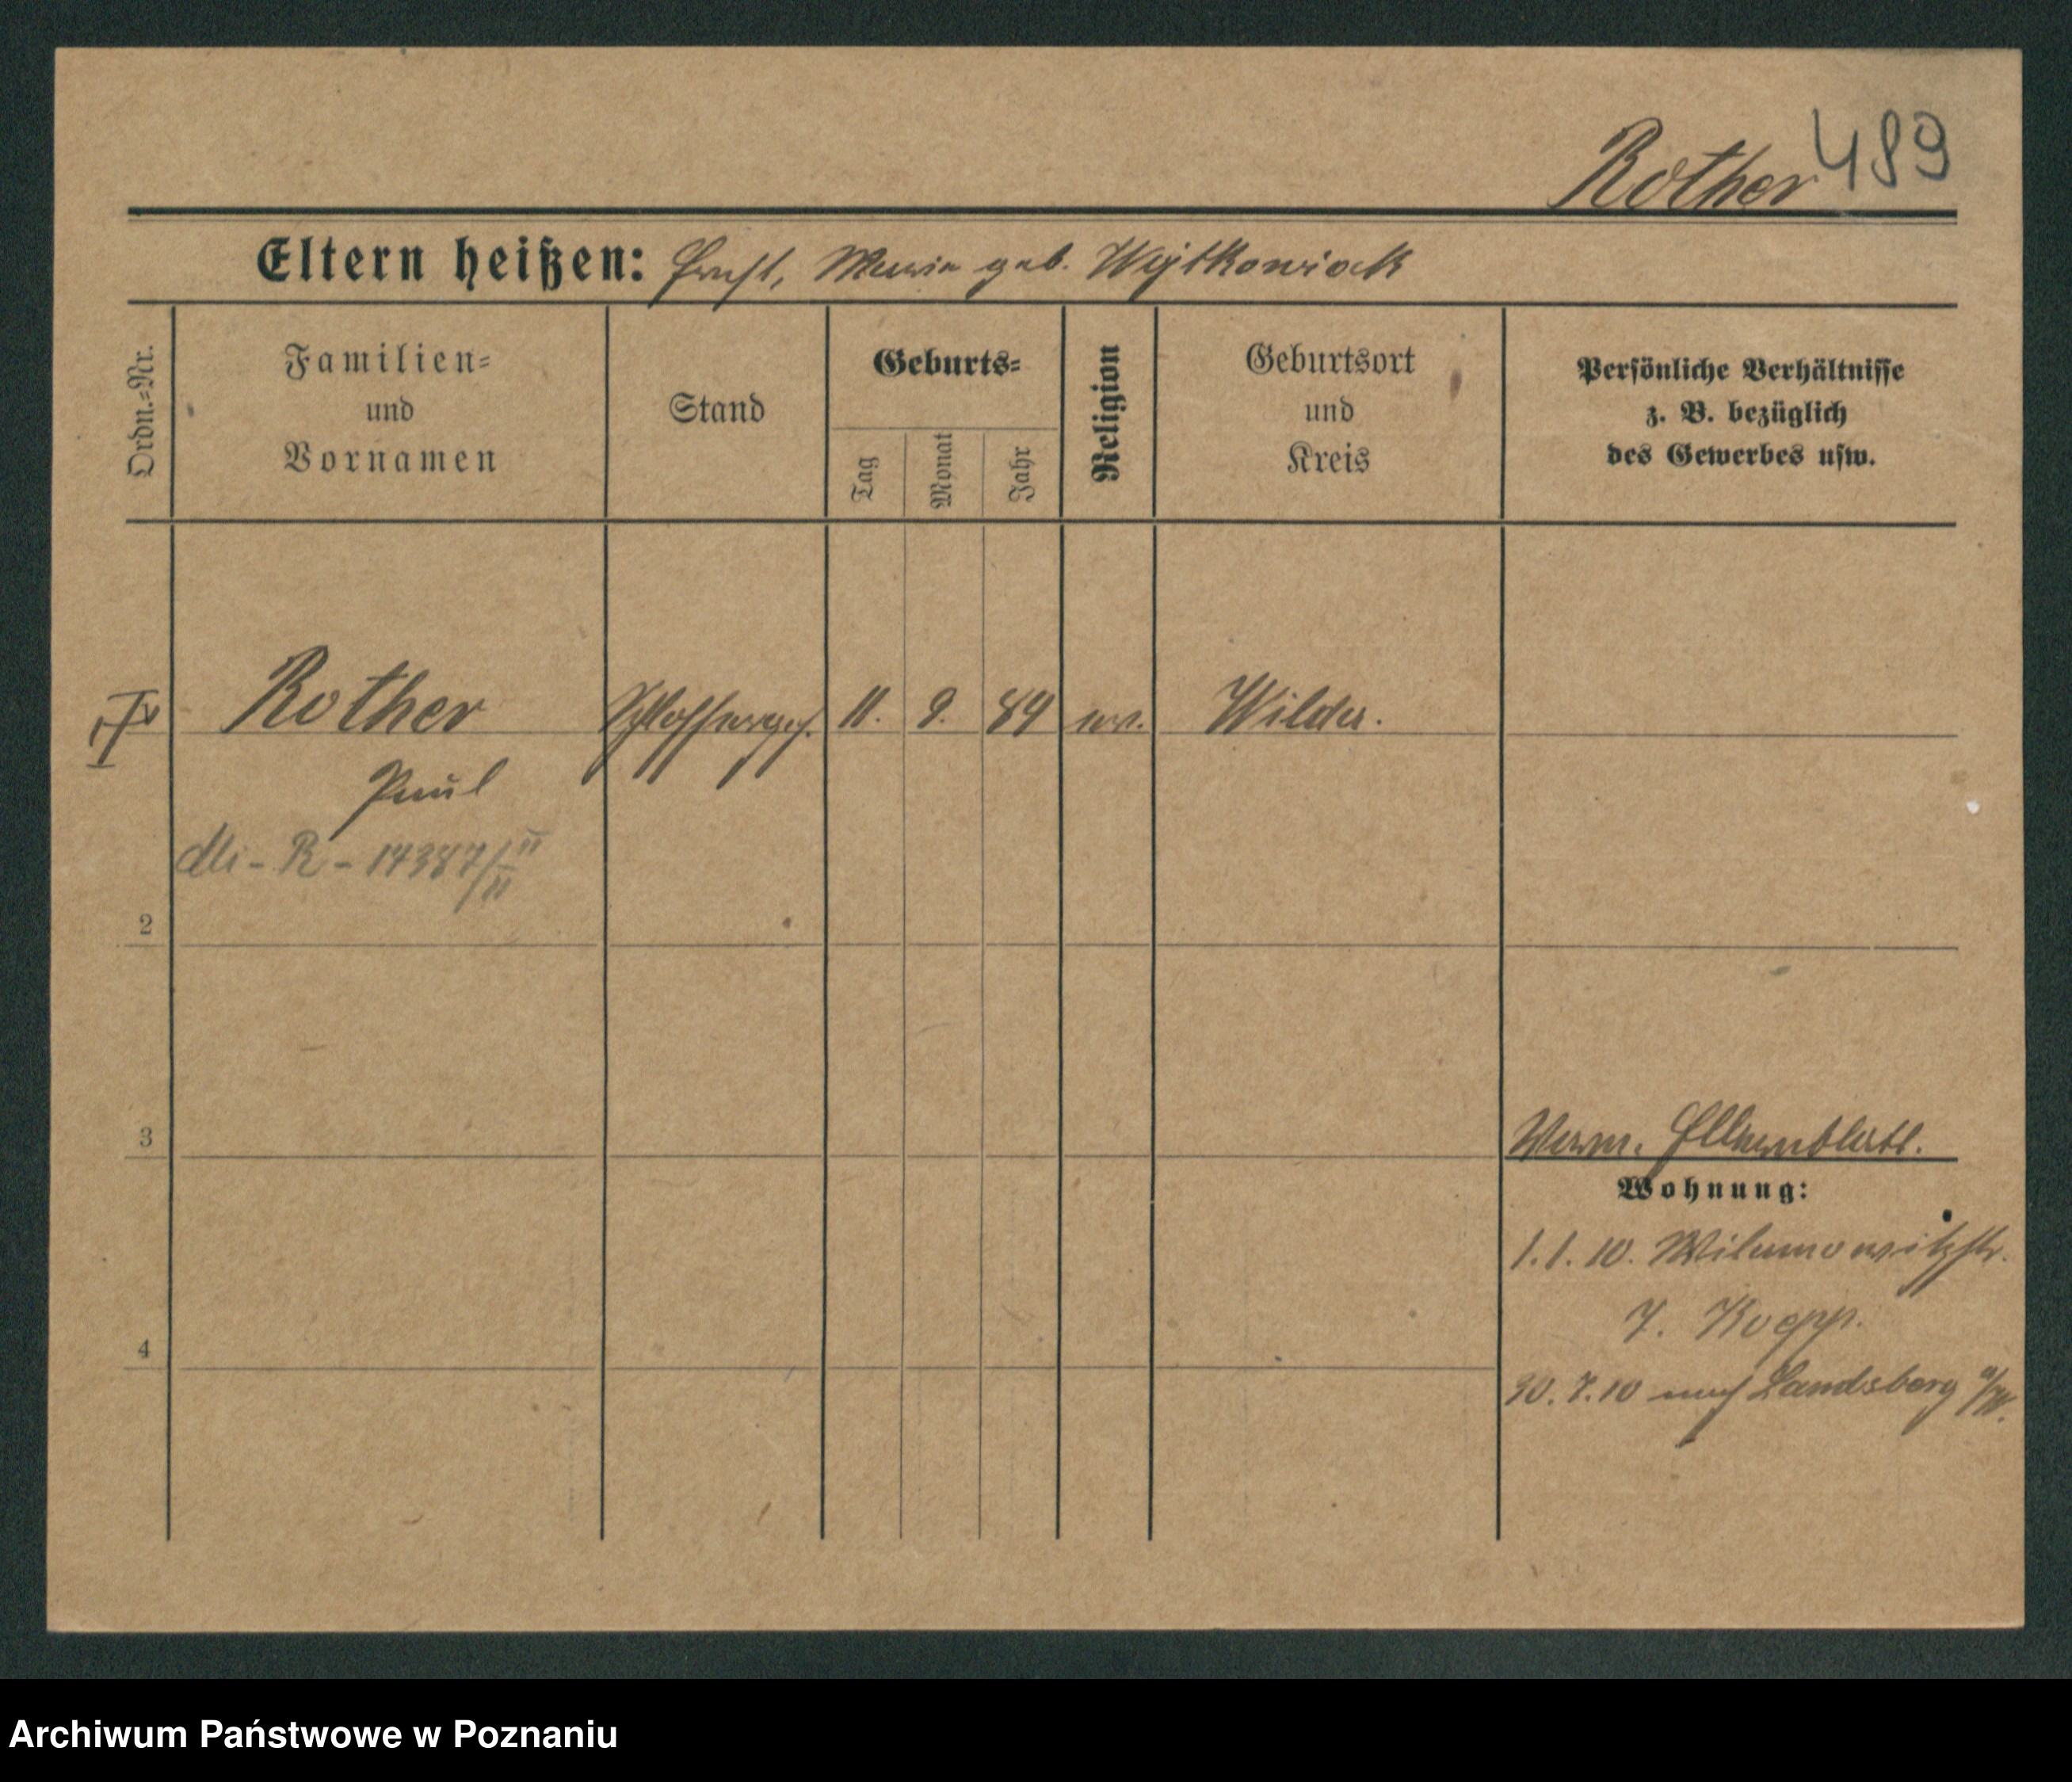 Rother 489
Eltern heißen: Ernst, Maria geb. Wojtkowiak
Ordn.-Nr.
Familien-
und
Vornamen
Stand
Geburts-
Tag
Monat
Jahr
Religion
Geburtsort
und
Kreis
Persönliche Verhältnisse
z. B. bezüglich
des Gewerbes usw.
Rother Schlosserges. 11. 9. 89 ev. Wilda.
Paul
2
3
Wohnung:
1.1.10. Wilamowitzstr.
7. Kopp.
30.7.10 nach Landsberg a/W.
4
Archiwum Państwowe w Poznaniu